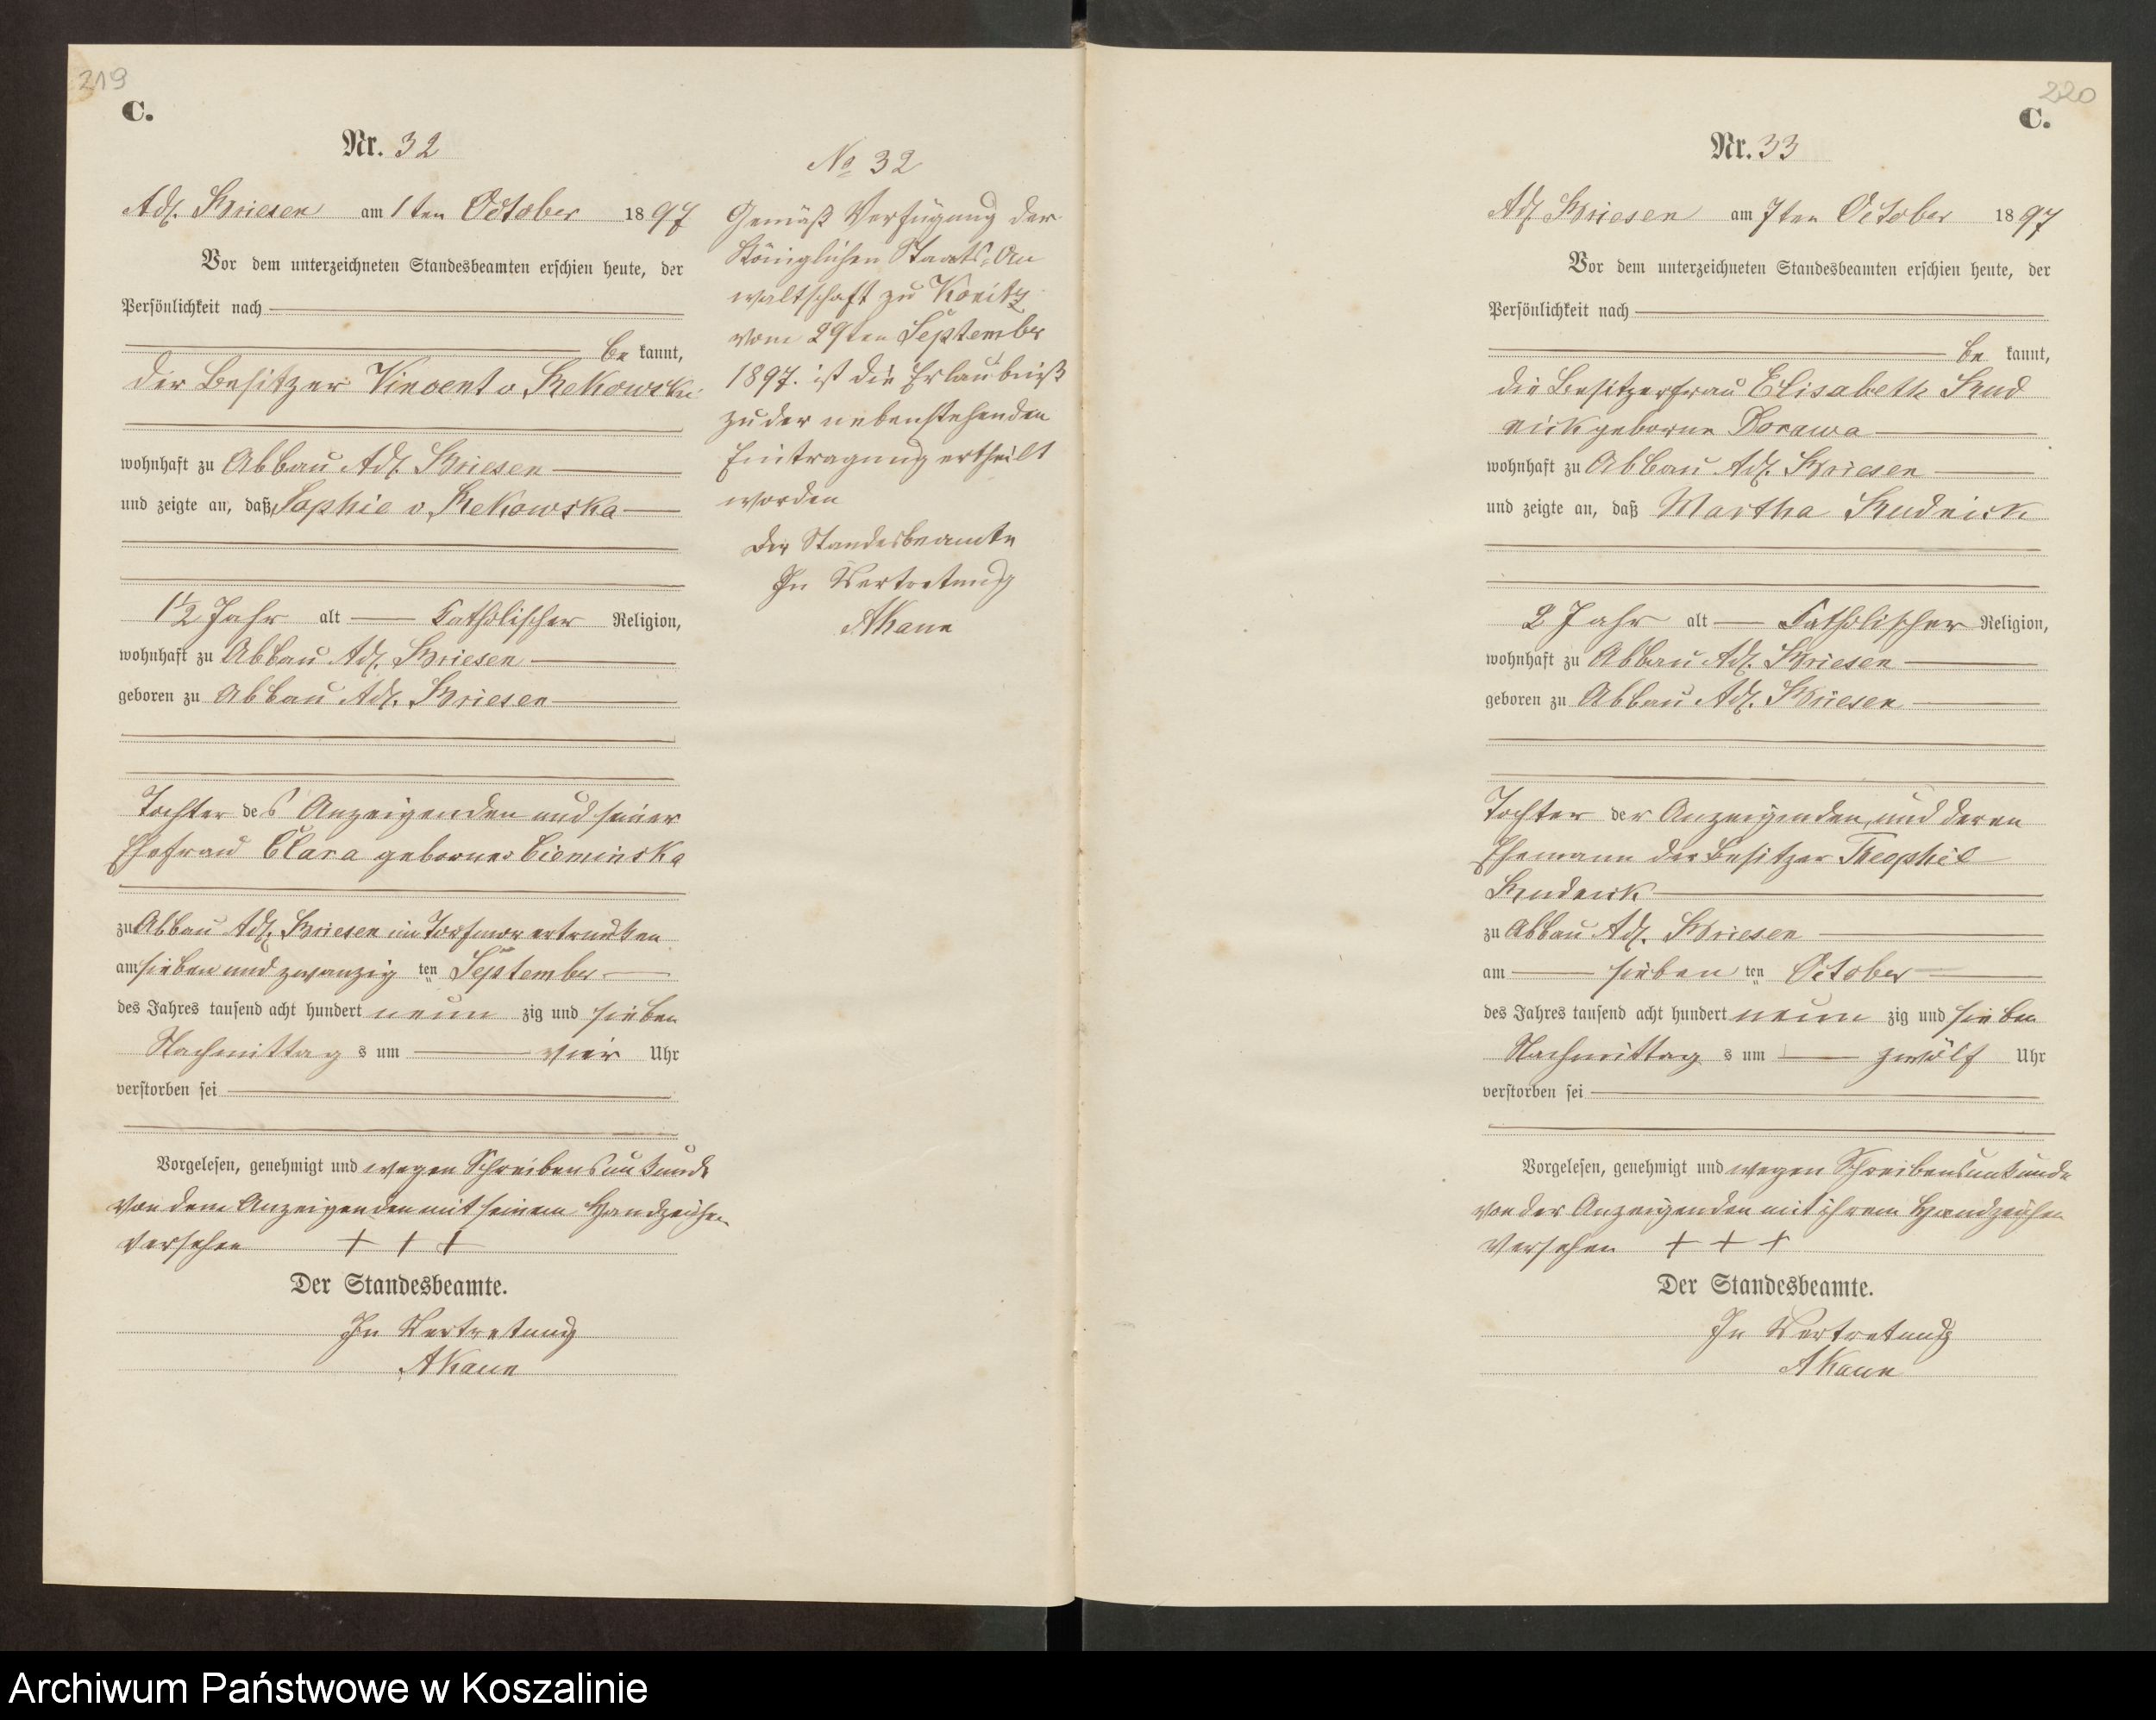 219
C.
Nr. 32
Adl. Briesen am 1ten October 1897
Vor dem unterzeichneten Standesbeamten erschien heute, der
Persönlichkeit nach
be kannt,
der Besitzer Vincent v Rekowski
wohnhaft zu Abbau Adl. Briesen
und zeigte an, daß Sophie v. Rekowska
1 1/2 Jahr alt katholischer Religion,
wohnhaft zu Abbau Adl. Briesen
geboren zu Abbau Adl. Briesen
Tochter des Anzeigenden und seiner
Ehefrau Clara geborner Cieminska
zu Abbau Adl. Briesen im Torfmor ertrunken
am sieben und zwanzig ten September
des Jahres tausend acht hundert neun zig und sieben
Nachmittag s um vier Uhr
verstorben sei
Vorgelesen, genehmigt und wegen Schreibensunkunde
von dem Anzeigenden mit seinem Handzeichen
versehen + + +
Der Standesbeamte.
In Vertretung
AKaun
No 32
Gemäß Verfügung der
Königlichen Staats-An
waltschaft zu Konitz
vom 29ten September
1897. ist die Erlaubniß
zu der nebenstehenden
Eintragung ertheilt
worden
Der Standesbeamte
In Vertretung
AKaun
220
C.
Nr. 33
Adl Briesen am 7ten October 1897
Vor dem unterzeichneten Standesbeamten erschien heute, der
Persönlichkeit nach
be kannt,
die Besitzerfrau Elisabeth Rud
nick geborne Dorawa
wohnhaft zu Abbau Adl. Briesen
und zeigte an, daß Martha Rudnick
2 Jahr alt katholischer Religion,
wohnhaft zu Abbau Adl. Briesen
geboren zu Abbau Adl. Briesen
Tochter der Anzeigenden, und deren
Ehemann der Besitzer Theophil
Rudnick
zu Abbau Adl. Briesen
am sieben ten October
des Jahres tausend acht hundert neun zig und sieben
Nachmittag s um zwölf Uhr
verstorben sei
Vorgelesen, genehmigt und wegen Schreibensunkunde
von der Anzeigenden mit ihrem Handzeichen
versehen + + +
Der Standesbeamte.
In Vertretung
AKaun
Archiwum Państwowe w Koszalinie